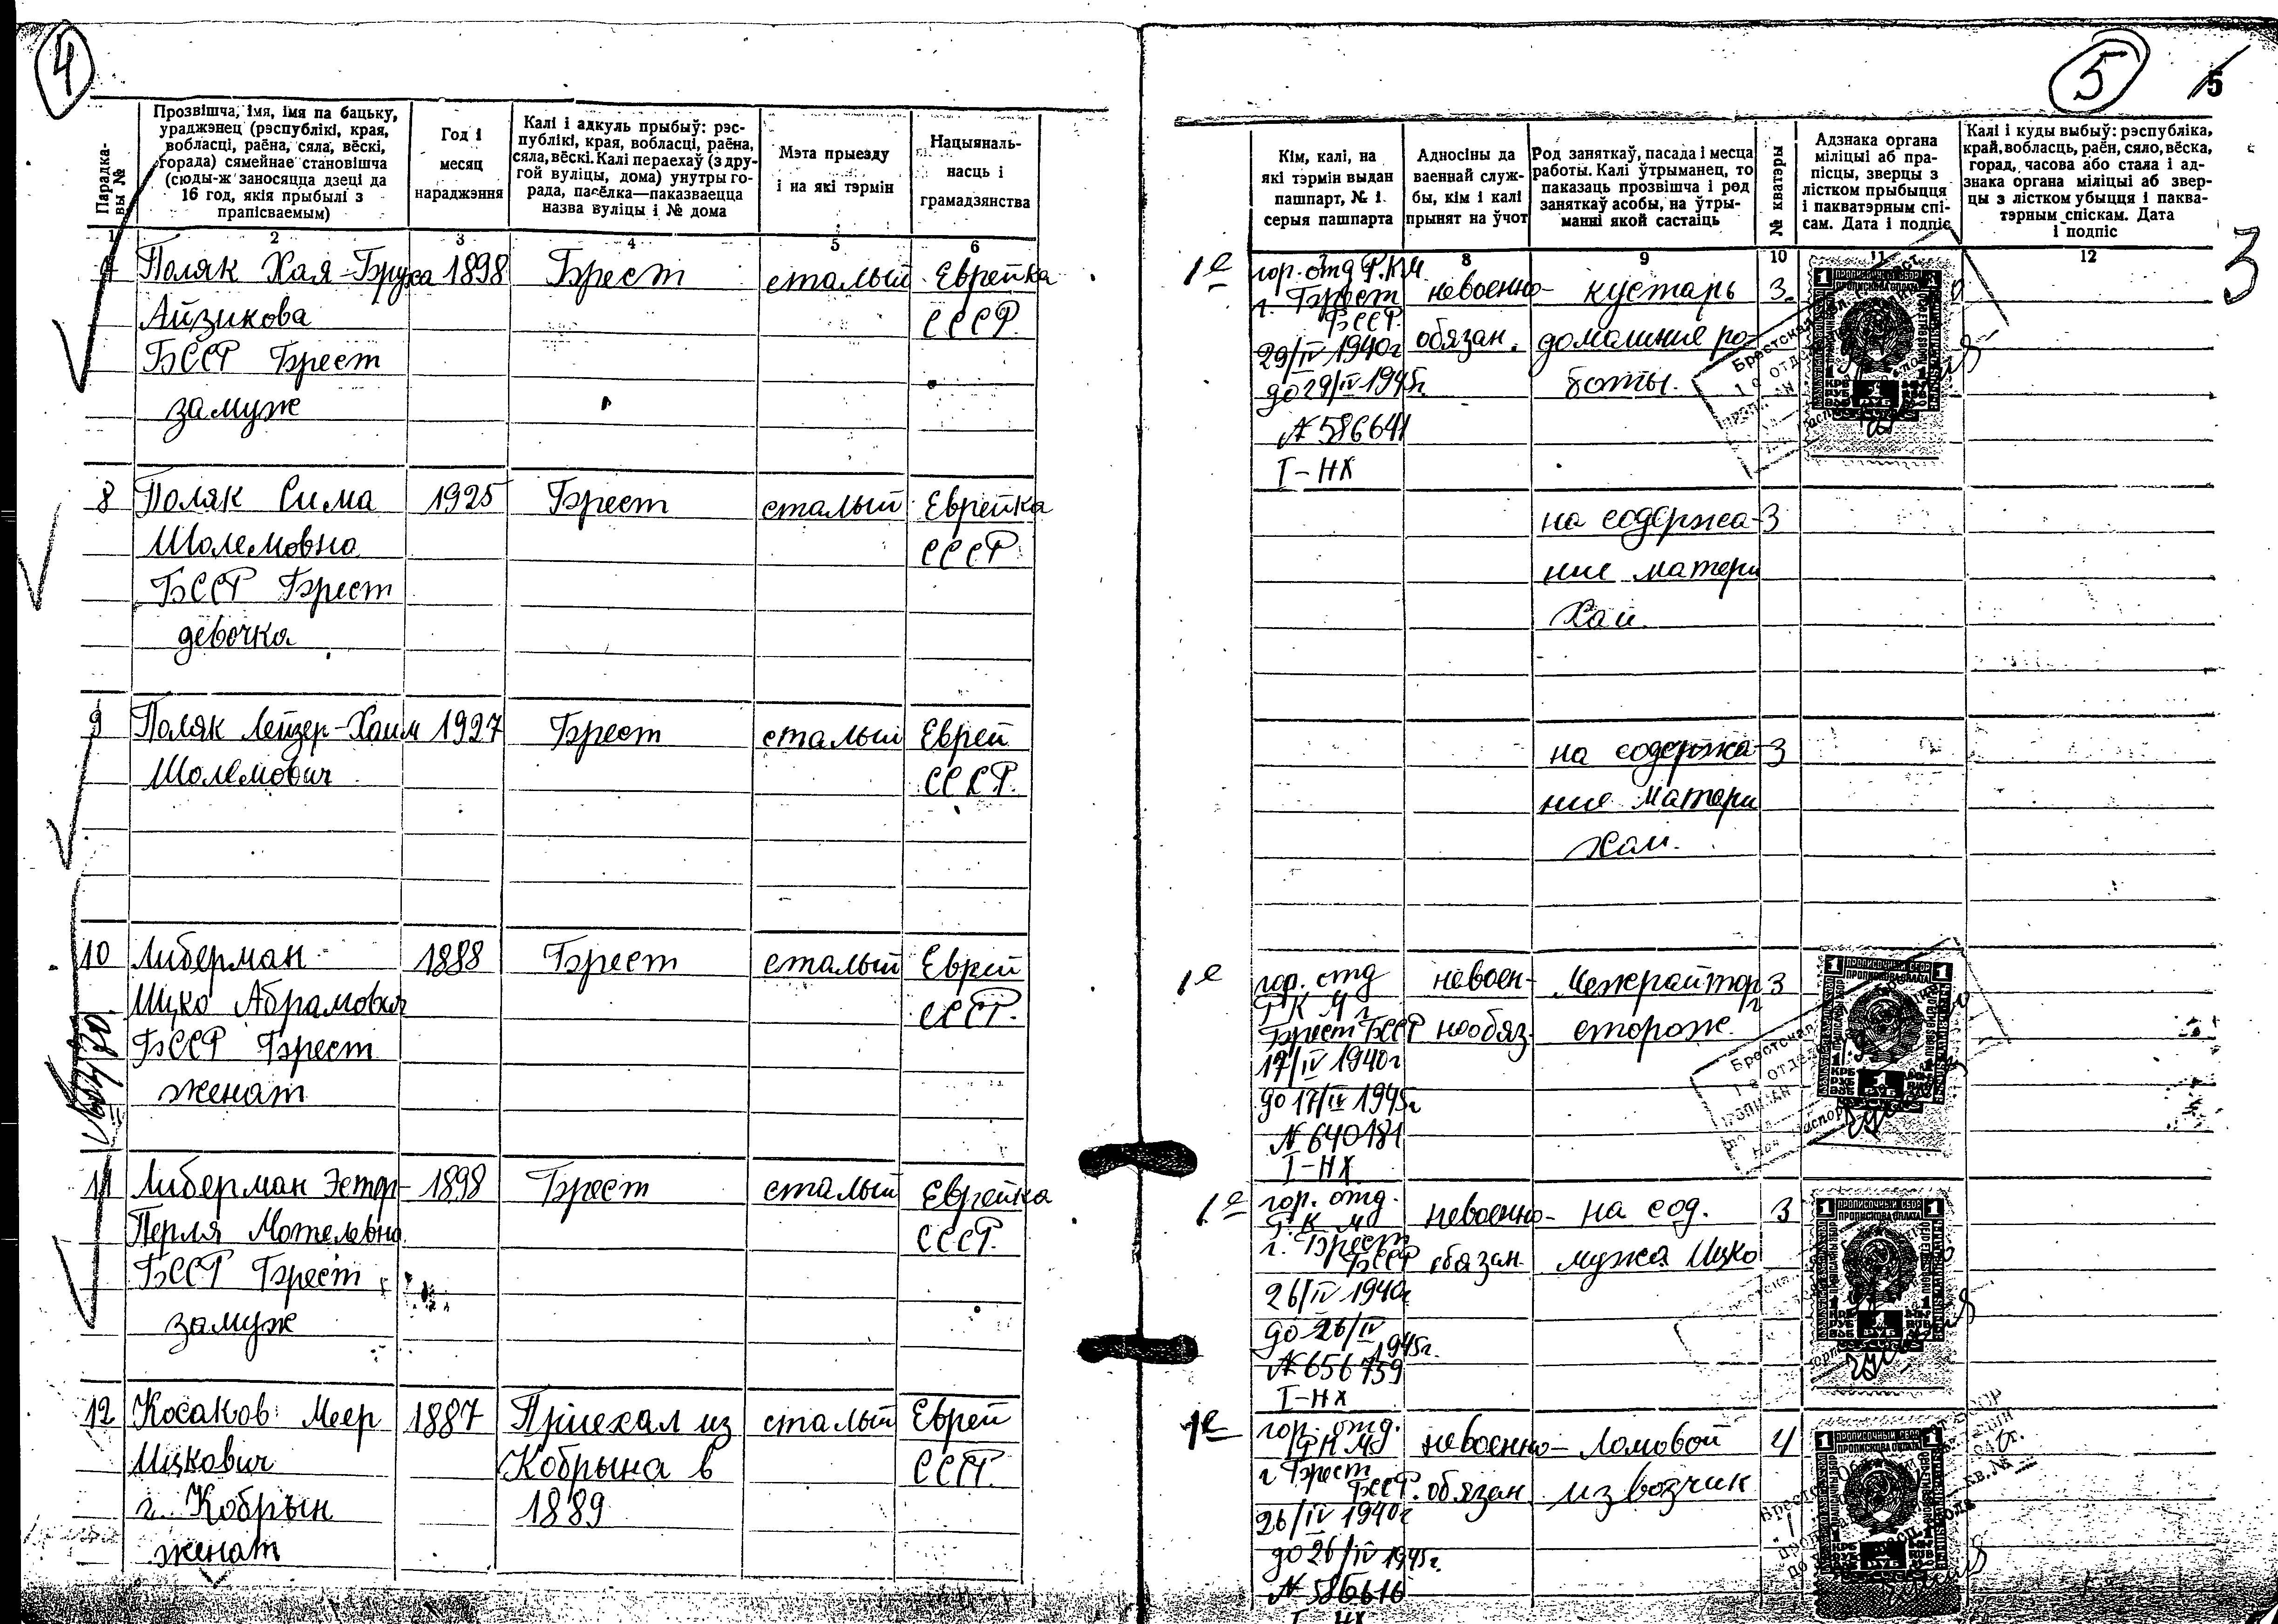 4
Парадка-
вы №
Прозвішча, імя, імя па бацьку,
ураджэнец (рэспублікі, края,
вобласці, раёна, сяла, вёскі,
горада) сямейнае становішча
(сюды-ж заносяцца дзеці да
16 год, якія прыбылі з
прапісваемым)
Год і
месяц
нараджэння
Калі і адкуль прыбыў: рэс-
публікі, края, вобласці, раёна,
сяла, вёскі. Калі пераехаў (з дру-
гой вуліцы, дома) унутры го-
рада, пасёлка—паказваецца
назва вуліцы і № дома
Мэта прыезду
і на які тэрмін
Нацыяналь-
насць і
грамадзянства
1 2 3 4 5 6
Поляк Хая-Бруха 1898 Брест сталый Еврейка
Айзикова СССР.
БССР Брест
замуж
8 Поляк Сима 1925 Брест сталый Еврейка
Шолемовна СССР
БССР Брест
девочка
9 Поляк Лейзер-Хаим 1927 Брест сталый Еврей
Шолемович СССР.
10 Либерман 1888 Брест сталый Еврей
Ицко Абрамович СССР.
БССР Брест
женат
11 Либерман Эстер- 1898 Брест сталый Еврейка
Перля Мотелевна СССР.
БССР Брест
замуж
12 Косаков Меер 1887 Приехал из сталый Еврей
Ицкович Кобрына в СССР.
г. Кобрын 1889
женат
5
5
3
Кім, калі, на
які тэрмін выдан
пашпарт, № і
серыя пашпарта
Адносіны да
ваеннай служ-
бы, кім і калі
прынят на ўчот
Род заняткаў, пасада і месца
работы. Калі ўтрыманец, то
паказаць прозвішча і род
заняткаў асобы, на ўтры-
манні якой састаіць
№ кватэры
Адзнака органа
міліцыі аб пра-
пісцы, зверцы з
лістком прыбыцця
і пакватэрным спі-
сам. Дата і подпіс
Калі і куды выбыў: рэспубліка,
край, вобласць, раён, сяло, вёска,
горад, часова або стала і ад-
знака органа міліцыі аб звер-
цы з лістком убыцця і паква-
тэрным спіскам. Дата
і подпіс
7 8 9 10 11 12
1е гор. отд Р.К.М
г. Брест невоенно- кустарь 3.
БССР.
29/IV 1940г обязан. домашние ро-
до 29/IV 1945г. боты.
№ 586641
I-НХ
на содержа- 3
ние матери
Хаи.
на содержа- 3
ние матери
Хаи.
1е гор. отд невоен- Межрайторг 3
Р К М г
Брест БССР нообяз. сторож.
17/IV 1940г
до 17/IV 1945г
№ 640181
I-НХ
1е гор. отд. невоенно- на сод. 3
Р К М
г. Брест
БССР обязан. мужа Ицко
26/IV 1940г.
до 26/IV
1945г.
№ 656759
I-НХ
1е гор. отд. невоенно- Ломовой 4
Р К М
г Брест
БССР. обязан. извозчик
26/IV 1940г
до 26/IV 1945г.
№ 586616
I-НХ
1 ПРОПИСОЧНЫЙ СБОР 1
ПРОПИСКОВА ОПЛАТА
1 ПРОПИСОЧНЫЙ СБОР 1
ПРОПИСКОВА ОПЛАТА
1 ПРОПИСОЧНЫЙ СБОР 1
ПРОПИСКОВА ОПЛАТА
1 ПРОПИСОЧНЫЙ СБОР 1
ПРОПИСКОВА ОПЛАТА